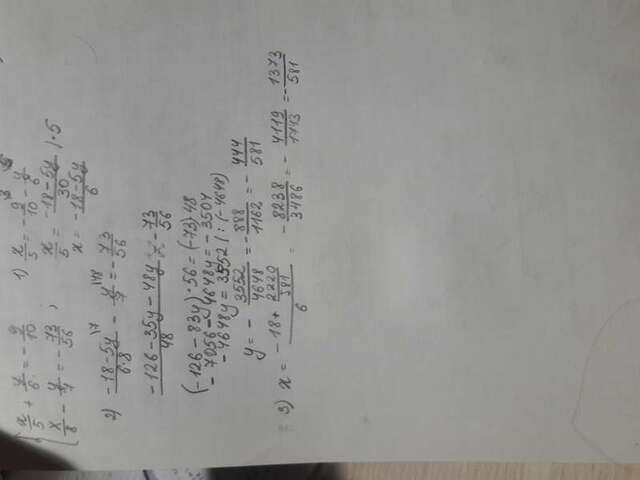 { x/5 + y/6 = -9/10
x/8 - y/7 = -73/56 ,
1) x/5 = -9/10 - y/6
x/5 = (-18-5y)/30 | · 5
x = (-18-5y)/6
2) (-18-5y)/(6·8) - y/7 = -73/56
(-126-35y-48y)/48 = -73/56
(-126-83y)·56=(-73)·48
-7056-4648y=-3504
-4648y=3552 | : (-4648)
y = -3552/4648 = -888/1162 = -444/581
3) x = (-18 + 2220/581)/6 = -8238/3486 = -4119/1743 = -1373/581